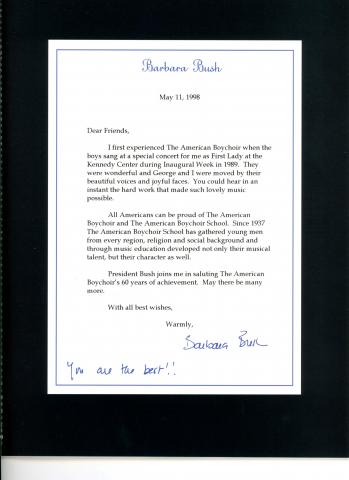 Barbara Bush
May 11, 1998
Dear Friends,
I first experienced The American Boychoir when the
boys sang at a special concert for me as First Lady at the
Kennedy Center during Inaugural Week in 1989. They
were wonderful and George and I were moved by their
beautiful voices and joyful faces. You could hear in an
instant the hard work that made such lovely music
possible.
All Americans can be proud of The American
Boychoir and The American Boychoir School. Since 1937
The American Boychoir School has gathered young men
from every region, religion and social background and
through music education developed not only their musical
talent, but their character as well.
President Bush joins me in saluting The American
Boychoir's 60 years of achievement. May there be many
more.
With all best wishes,
Warmly,
Barbara Bush
You are the best!!